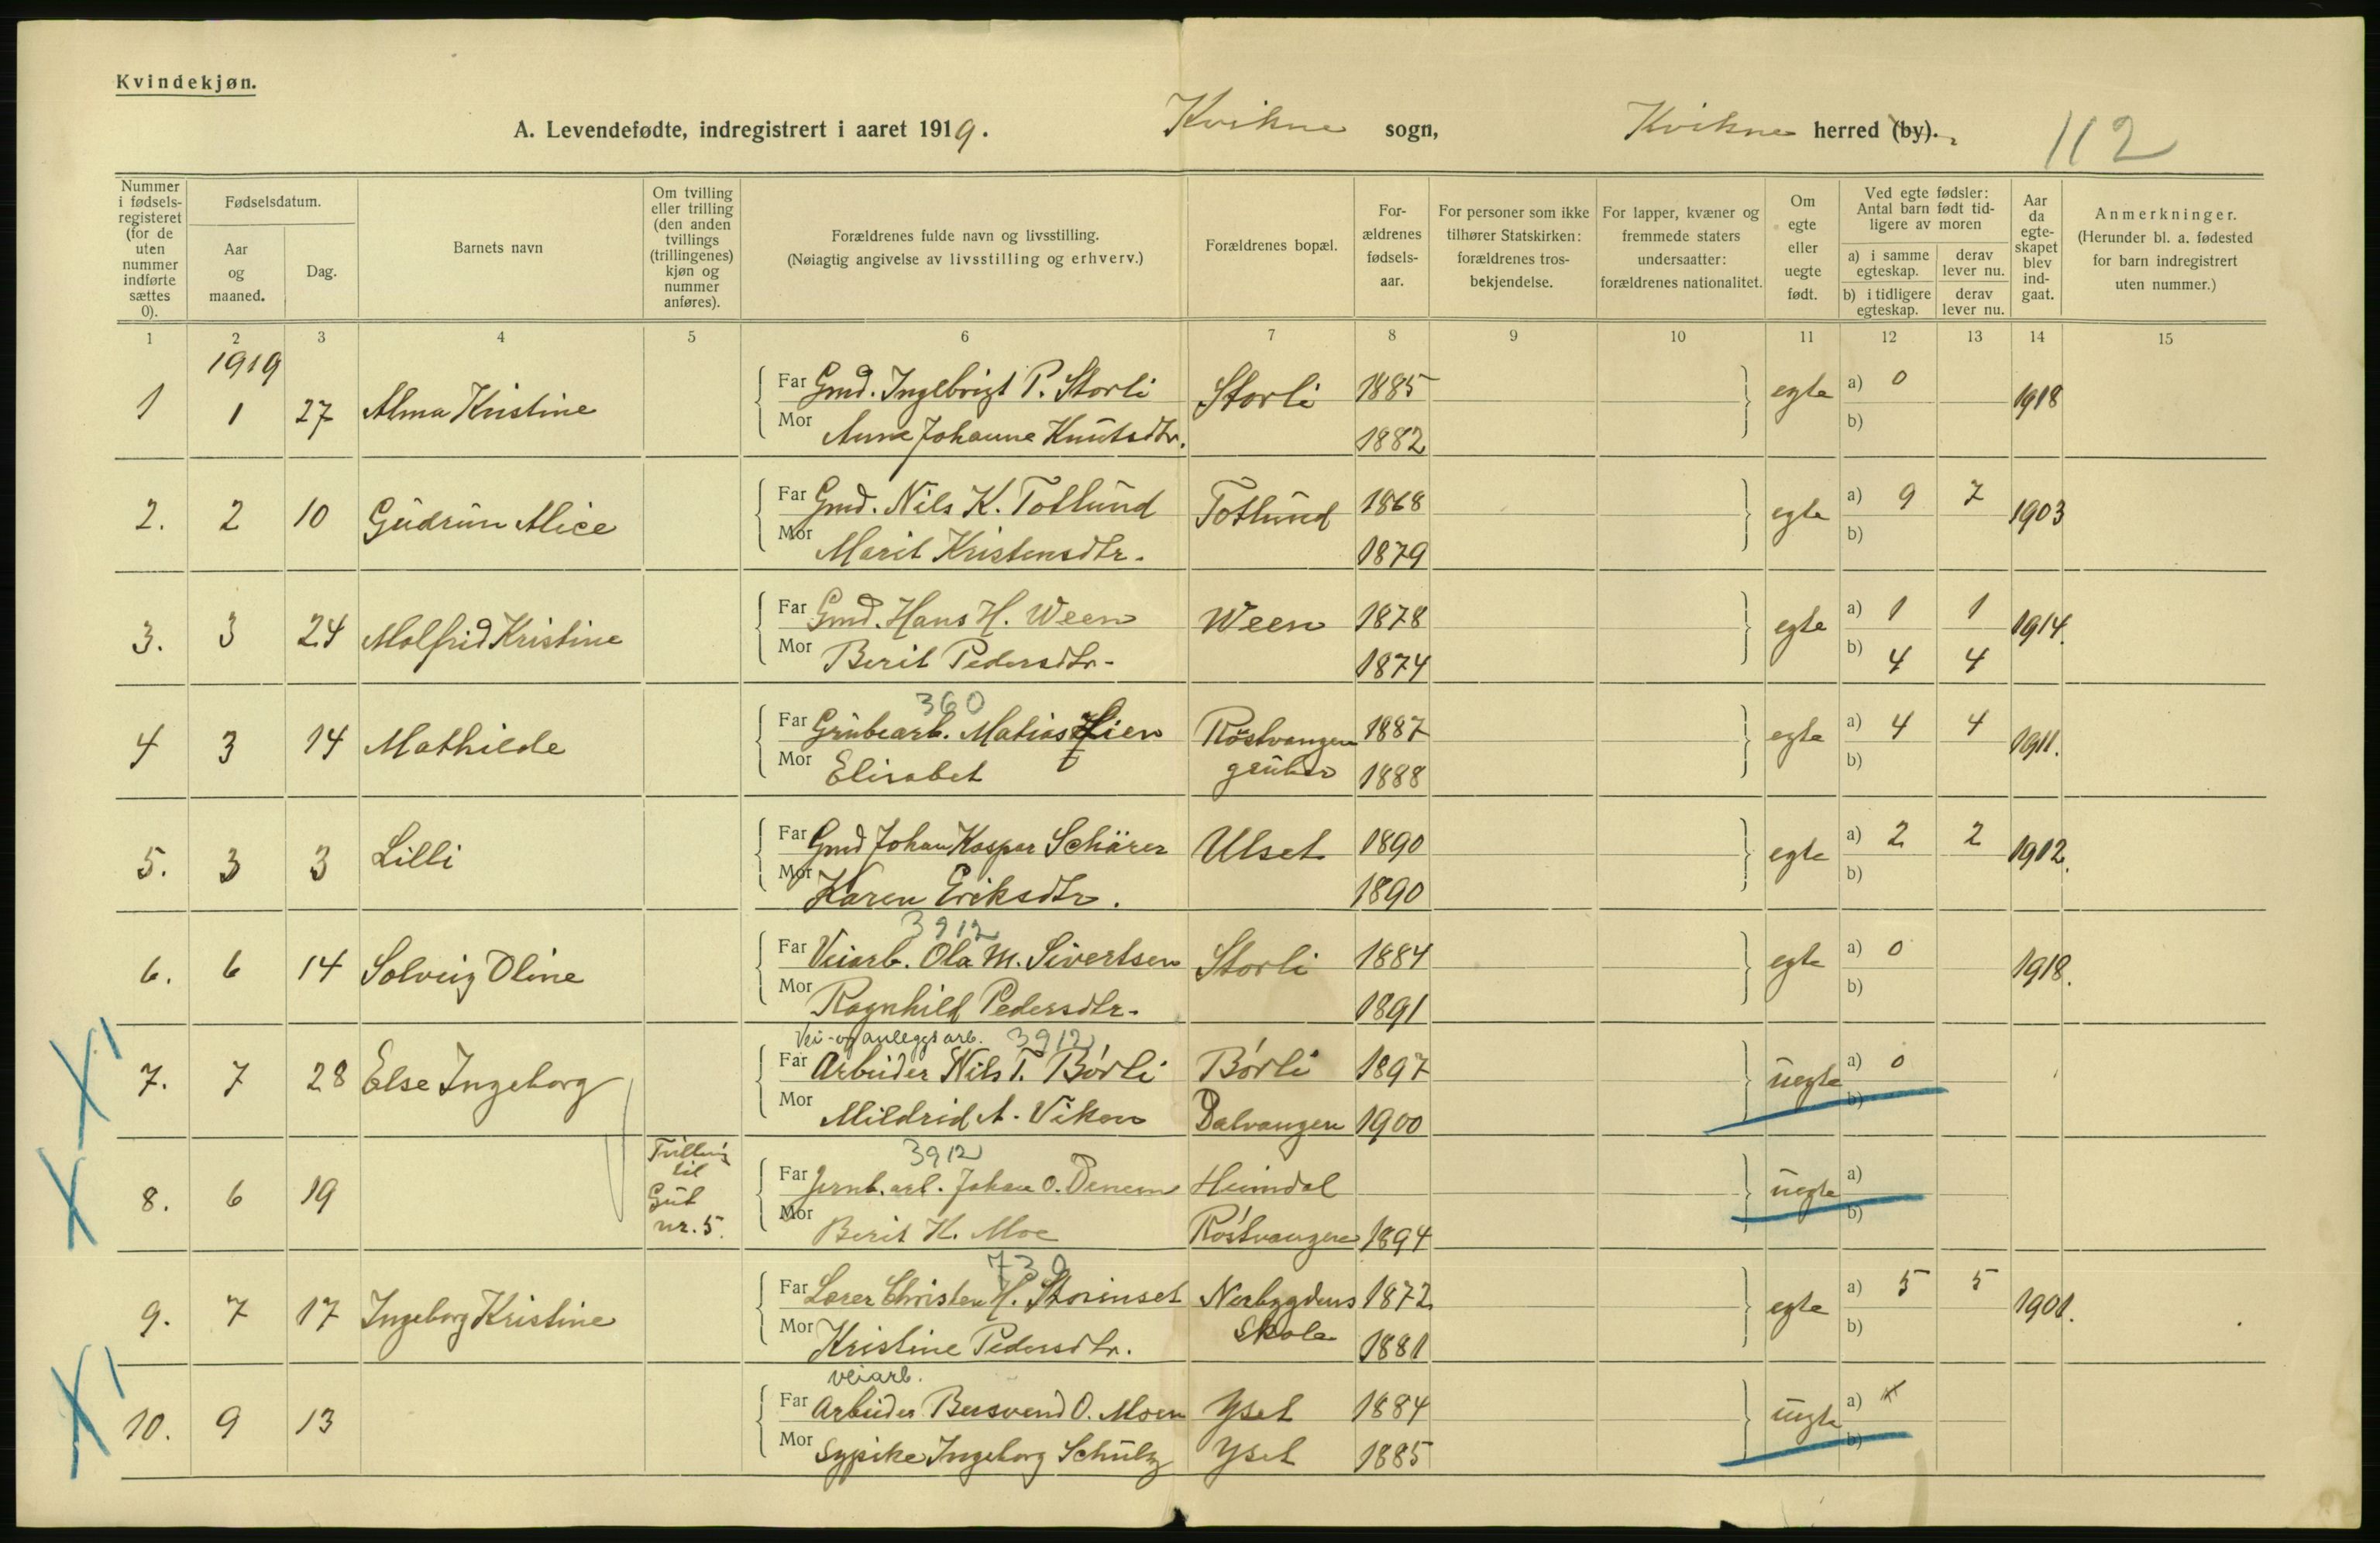 Kvindekjøn.
A. Levendefødte, indregistrert i aaret 1919. Kvikne sogn, Kvikne herred (by). 112
Nummer i fødselsregisteret (for de uten nummer indførte sættes 0).
Fødselsdatum.
Aar og maaned.
Dag.
Barnets navn
Om tvilling eller trilling (den anden tvillings (trillingenes) kjøn og nummer anføres).
Forældrenes fulde navn og livsstilling.
(Nøiagtig angivelse av livsstilling og erhverv.)
Forældrenes bopæl.
For-ældrenes fødsels-aar.
For personer som ikke tilhører Statskirken: forældrenes tros-bekjendelse.
For lapper, kvæner og fremmede staters undersaatter: forældrenes nationalitet.
Om egte eller uegte født.
Ved egte fødsler: Antal barn født tid-ligere av moren
a) i samme egteskap. derav lever nu.
b) i tidligere egteskap. derav lever nu.
Aar da egte-skapet blev ind-gaat.
Anmerkninger.
(Herunder bl. a. fødested for barn indregistrert uten nummer.)
1 2 3 4 5 6 7 8 9 10 11 12 13 14 15
1919
1 1 27 Alma Kristine Far Gmd. Ingebrigt P. Storli Storli 1885 egte a) 0 1918
Mor Anne Johanne Knutsdtr. 1882 b)
2. 2 10 Gudrun Alice Far Gmd. Nils K. Totlund Totlund 1868 egte a) 9 7 1903
Mor Marit Kristensdtr. 1879 b)
3. 3 24 Molfrid Kristine Far Gmd. Hans H. Ween Ween 1878 egte a) 1 1 1914.
Mor Berit Pedersdtr. 1874 b) 4 4
360
4 3 14 Mathilde Far Grubearb. Matias Lien Røstvangen 1887 egte a) 4 4 1911.
Mor Elisabet gruber 1888 b)
5. 3 3 Lilli Far Gmd Johan Kaspar Schärer Ulset 1890 egte a) 2 2 1912.
Mor Karen Eriksdtr. 1890 b)
3912
6. 6 14 Solveig Oline Far Veiarb. Ola M. Sivertsen Storli 1884 egte a) 0 1918.
Mor Ragnhild Pedersdtr. 1891 b)
Vei- og anleggsarb. 3912
7. 7 28 Else Ingeborg Far Arbeider Nils T. Børli Børli 1897 uegte a) 0
Mor Mildrid A. Viken Dalvangen 1900 b)
3912
8. 6 19 Tvilling til Gut nr. 5. Far Jernb. arb. Johan O. Heimdal uegte a)
Mor Berit H. Moe Røstvangen 1894 b)
730
9. 7 17 Ingeborg Kristine Far Lærer Christen H. Storinset Nerbygdens 1872 egte a) 5 5 1901.
Mor Kristine Pedersdtr. Skole 1881 b)
veiarb.
10. 9 13 Far Arbeider Bersvend O. Moen Yset 1884 uegte a) x
Mor Sypike Ingeborg Schulz Yset 1885 b)